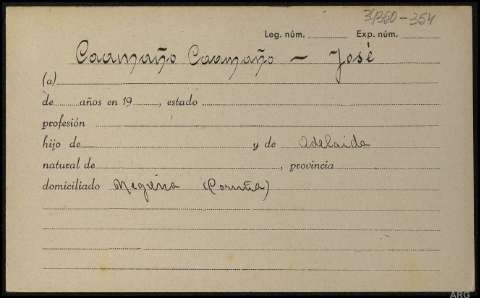 31360-354
Leg. núm. Exp. núm.
Caamaño Caamaño - José
(a)
de años en 19 , estado
profesión
hijo de y de Adelaida
natural de , provincia
domiciliado Negreira (Coruña)
ARG